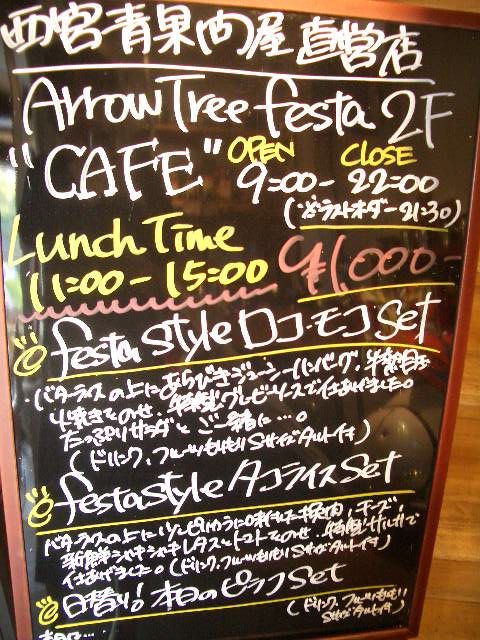 西宮青果問屋 直営店
Arrow Tree festa 2F
"CAFE" OPEN CLOSE
9:00-22:00
(ラストオーダー21:30)
Lunch Time
11:00-15:00 ¥1,000-
festa style ロコ・モコ Set
バターライスの上にあらびきジューシーハンバーグ、半熟目玉
焼きをのせ、特製グレービーソースで仕上げました。
たっぷりサラダとご一緒に…。
(ドリンク、フルーツもりもりSサイズタルト付)
festa style タコライス Set
バターライスの上にピリから味付した挽肉、チーズ、
新鮮シャキシャキレタスとトマトをのせ、特製サルサで
仕上げました。(ドリンク、フルーツもりもりSサイズタルト付)
日替り!本日のピラフ Set
(ドリンク、フルーツもりもり
Sサイズタルト付)